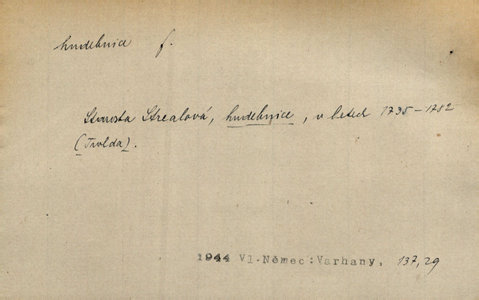 hudebnice f.
Starosta Strealová, hudebnice, v letech 1735-1782
(Trolda).
1944 Vl.Němec:Varhany, 137,29